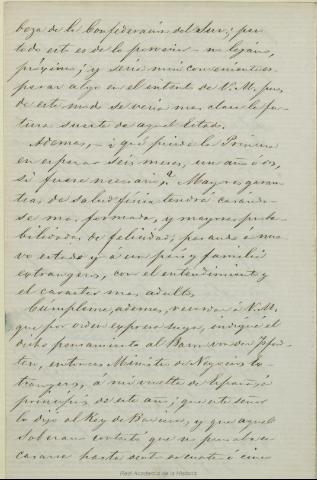 beza de la Confederación del Sur; pero
todo esto es de lo porvenir - no lejano,
próximo; y sería muy conveniente es-
perar algo en el intento de V. M., pues
de este modo se vería mas clara la fu-
tura suerte de aquel Estado.
Ademas, - ¿qué pierde la Princesa
en esperar seis meses, un año ó dos,
si fuere necesario? Mayores garan-
tías de salud física tendrá casando-
se mas formada, y mayores proba-
bilidades de felicidad, pasando á nue-
vo estado y á un pais y familia
extrangeros, con el entendimiento y
el carácter mas adultos.
Cúmpleme, ademas, recordar á V. M.
que por orden expresa suya, indiqué el
dicho pensamiento al Baron von der Pford-
ten, entonces Ministro de Negocios Ex-
trangeros, á mi vuelta de España, á
principios de este año; que este señor
lo dijo al Rey de Baviera, y que aquel
Soberano contestó que no pensaba en
casarse hasta dentro de cuatro ó cinco
Real Academia de la Historia